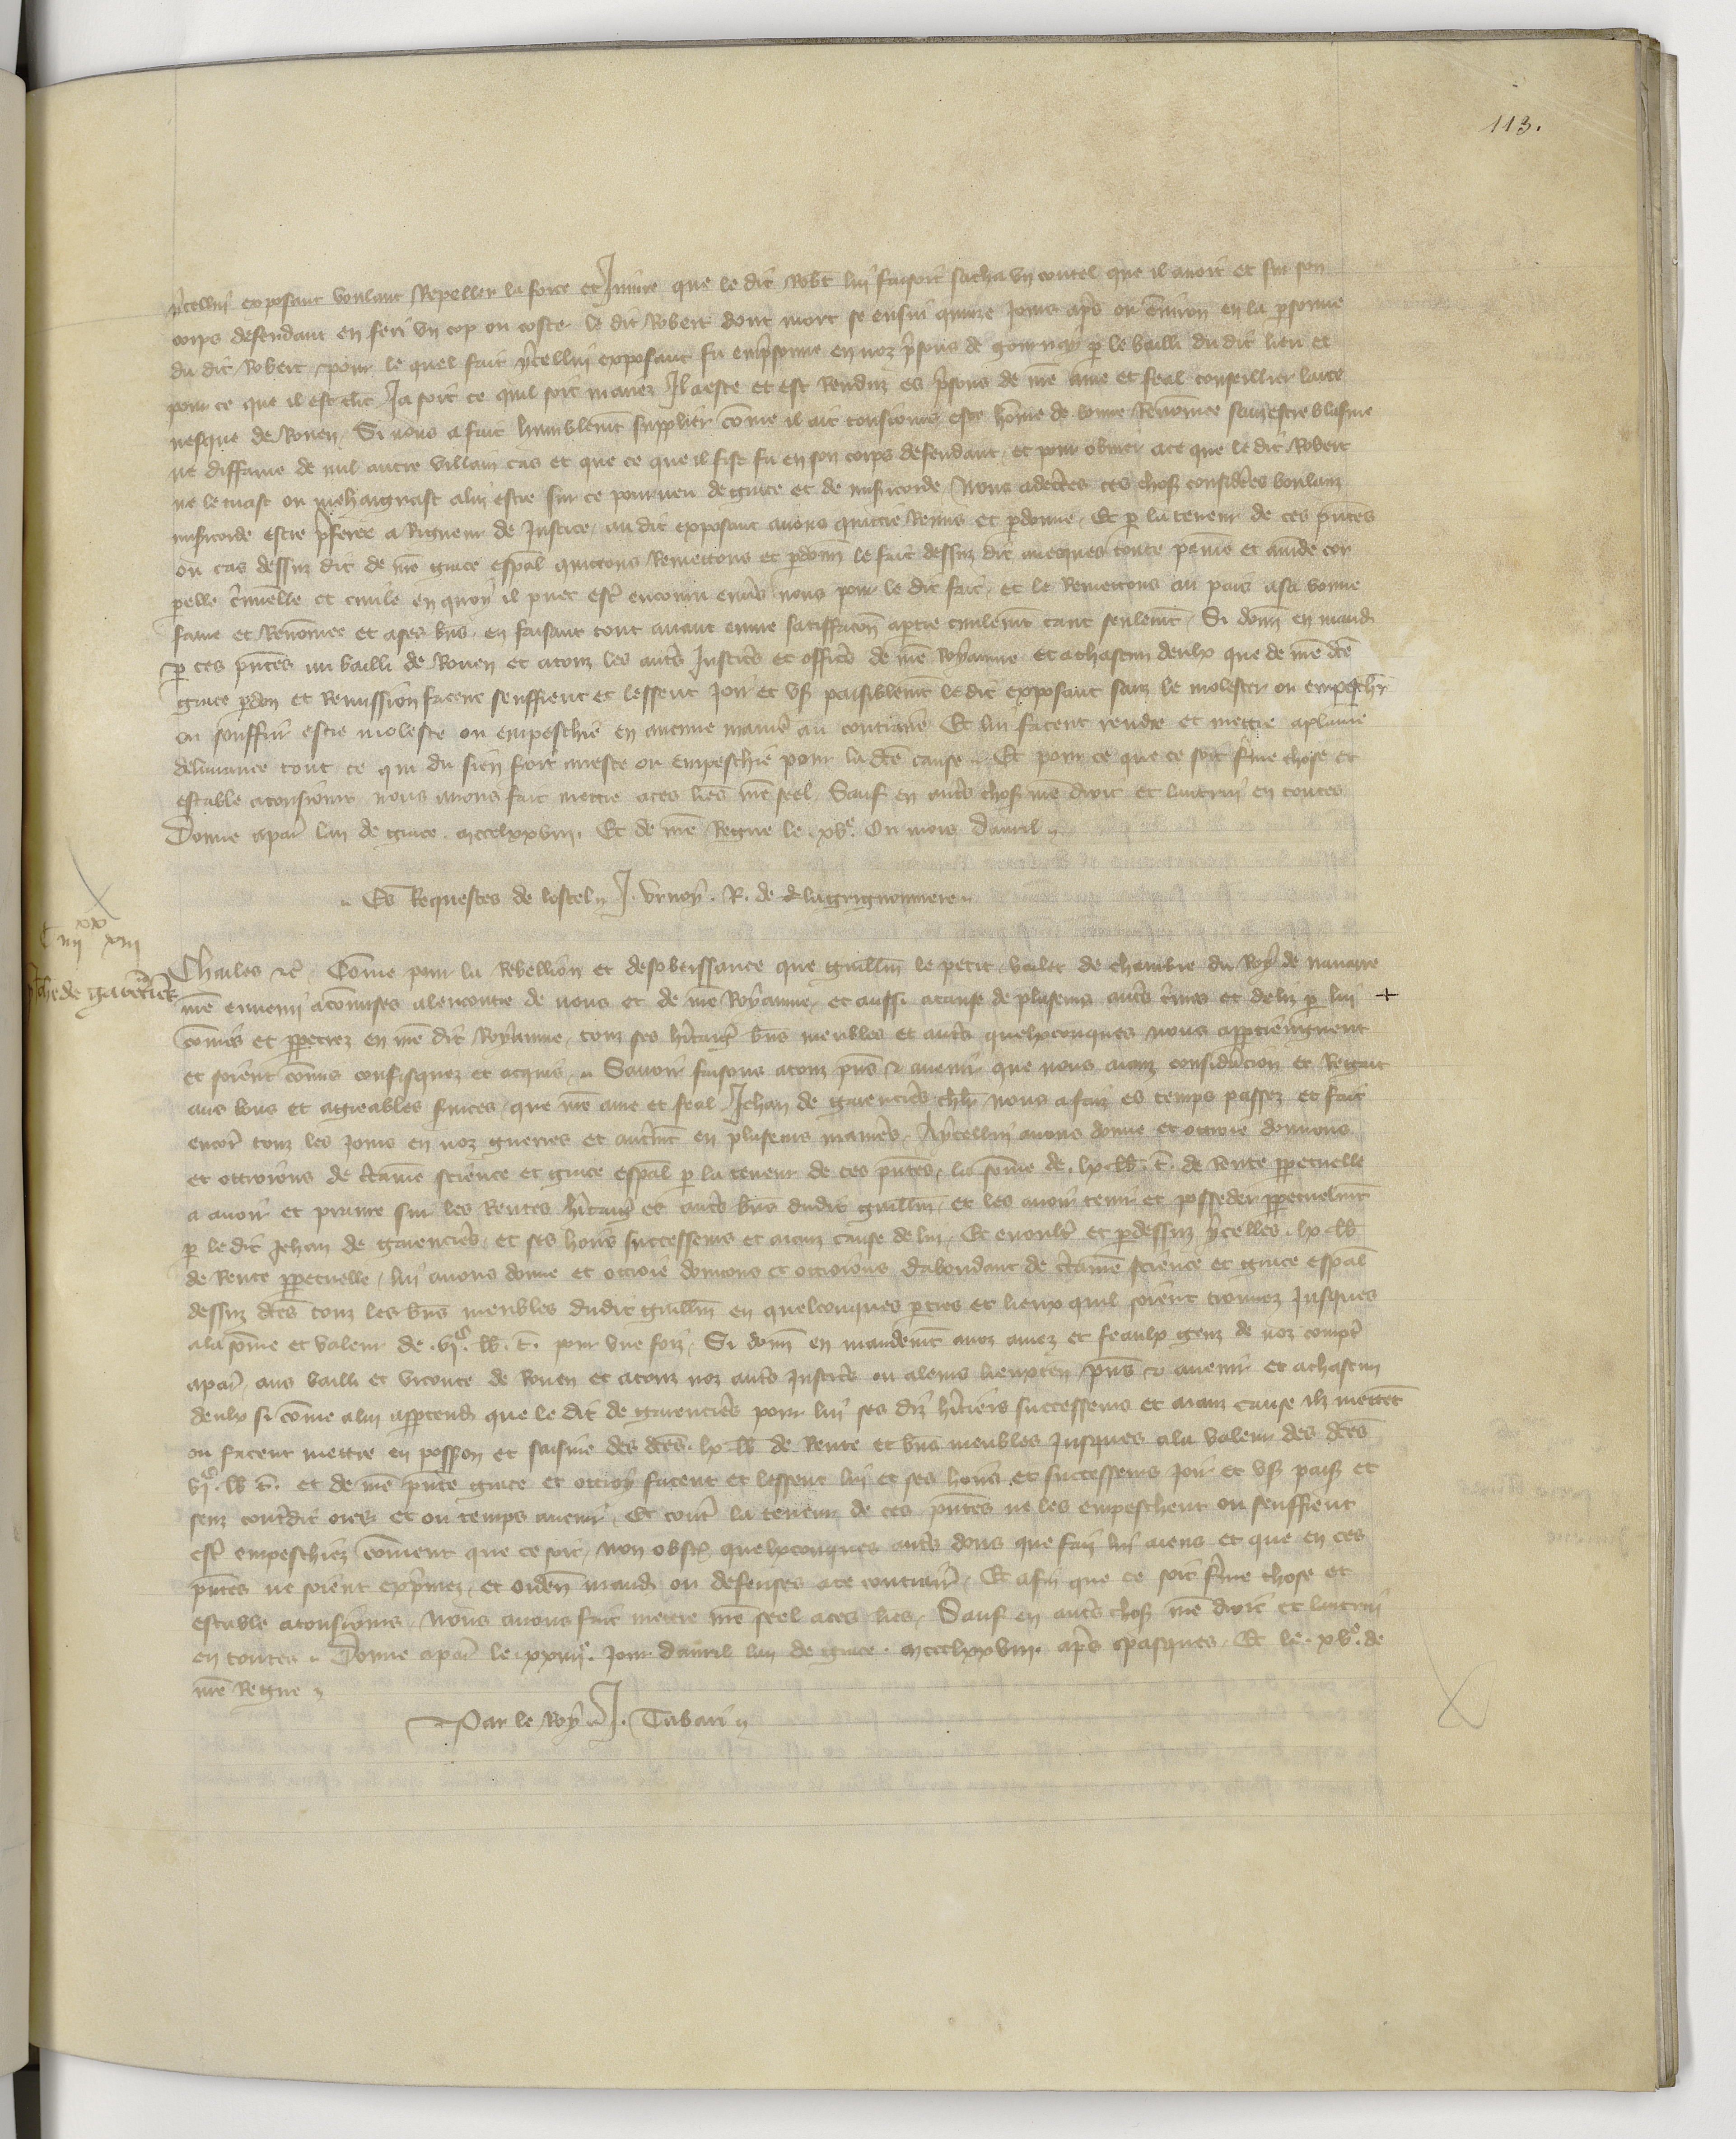 113.
ycellui exposant voulant Repeller la force et Iniure que le dit Robt lui faisoit sacha un coutel que il avoit et sur son
corps defendant en feri un cop ou coste le dit Robert dont mort se ensui quinze jours aps ou environ en la psonne
du dit Robert pour le quel fait ycellui exposant fu emprisonne en noz prisons de gournay p le bailli du dit lieu et
pour ce que il est clerc Ja soit ce quil soit mariez Il a este et est Renduz es prisons de nre ame et feal conseillier larce
vesque de Rouen Si nous a fait humblemt supplier come il ait tousiours este home de bonne Renomee sanz estre blasme
ne diffame de nul autre villain cas et que ce que il fist fu en son corps defendant et pour obvier a ce que le dit Robert
ne le tuast ou mehaignast a lui estre sur ce pourveu de grace et de misicorde Nous adectes ces choses considerees voulanz
misicorde estre pferee a Rigueur de Justice au dit exposant avons quittie Remis et pdonne Et p la teneur de ces pntes
ou cas dessuz dit de nre grace espal quittons Remettons et pdonn le fait dessuz dit avecques toute peine et amde cor
pelle criminelle et civile en quoy il puet estre encouru envers nous pour le dit fait et le Remettons au pais a sa bonne
fame et Renomee et a ses biens en faisant tout avant euvre satiffacon a ptie civilemt tant seulemt Si donn en mand
p ces pntes au bailli de Rouen et a touz les autres Justiciers et officiers de nre Royaume et a chascun deulx que de nre dce
grace pdon et Remission facent seuffrent et lessent joir et user paisiblemt le dit exposant sanz le molester ou empeschr
ou souffrir estre moleste ou empeschie en aucune maniere au contraire Et lui facent rendre et mettre a plaine
delivrance tout ce qui du sien seroit arreste ou empeschie pour la dce cause Et pour ce que ce soit ferme chose et
estable a tousiours nous avons fait mettre a ces lres nre seel Sauf en autres choses nre droit et lautrui en toutes
Donne a paris lan de grace mccclxxviii Et de nre Regne le xve Ou mois Davril
Es Requestes de lostel J. vrnoy. R. de la grignonniere
C iiiixx xiii
Jeh de garencier
Charles etc Come pour la Rebellion et desobeissance que guillm le petit varlet de chambre du Roy de navarre
nre ennemi a comises alencontre de nous et de nre Royaume et aussi a cause de pluseurs autres crimes et deliz p lui +
comis et ppetrez en nre dit Royaume touz ses hitages biens meubles et autres quelxconques nous apptieingnent
et soient comis confisquez et acquis Savoir faisons a touz pns et avenir que nous aianz considacion et Regart
aus bons et agreables services que nre ame et feal Jehan de garencieres chlr nous a faiz es temps passez et fait
encor touz les jours en noz guerres et autremt en pluseurs manieres A ycellui avons donne et ottroie donnons
et ottroions de ctaine science et grace espal p la teneur de ces pntes la some de lx lb. t. de Rente ppetuelle
a avoir et prandre sur les Rentes hitages et autres biens dudit guillm et les avoir tenir et posseder ppetuelmt
p le dit Jehan de garencieres et ses hoirs successeurs et aianz cause de lui Et en oultre et p dessuz ycelles lx lb
de Rente ppetuelle lui avons donne et ottroie donnons et ottroions dabondant de ctaine science et grace espal
dessuz dces touz les biens meubles dudit guillm en quelconques pties et lieux quil soient trouvez Jusques
a la some et valeur de vic. lb. t. pour une foiz Si donn en mandemt a noz amez et feaulx genz de noz comptes
a paris aus bailli et viconte de Rouen et a touz noz autres Justiciers ou a leurs lieuxten pns et avenir et a chascun
deulx si come a lui apptendra que le dit de garencieres pour lui ses diz hitiers successeurs et aianz cause ilz mettet
ou facent mettre en possion et saisine des dces lx lb de Rente et biens meubles Jusques a la valeur des dces
vic. lb t. et de nre pnte grace et ottroy facent et lessent lui et ses hoirs et successeurs joir et user paisiblemt et
senz contredit ores et ou temps avenir Et contre la teneur de ces pntes ne les empeschent ou seuffrent
estre empeschiez coment que ce soit Non obstant quelxconques autres dons que faiz lui aiens et que en ces
pntes ne soient exprimez et orden mand ou defenses a ce contraires Et afin que ce soit ferme chose et
estable a tousiours Nous avons fait mettre nre seel a ces lres Sauf en autres choses nre droit et lautrui
en toutes Donne a paris le xxiiiie Jour davril lan de grace mccclxxviii aps pasques Et le xve. de
nre Regne
Par le Roy J. Tabari